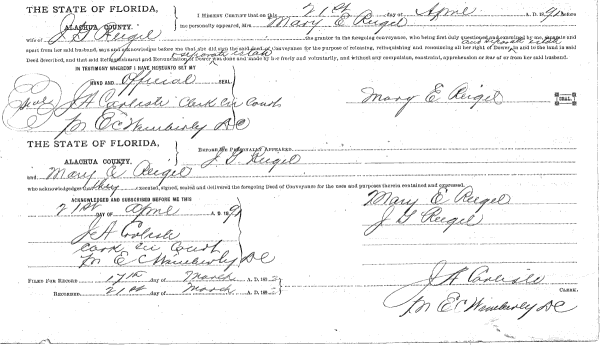 THE STATE OF FLORIDA,
ALACHUA COUNTY.
I HEREBY CERTIFY that on this 21st day of April A. D. 189 before
me personally appeared, Mrs Mary E Reigel
wife of J G Reigel the grantor in the foregoing conveyance, who being first duly questioned and examined by me, separate and
apart from her said husband, says and acknowledges before me that she did sign the said Deed of Conveyance for the purpose of releasing, relinquishing and renouncing all her right of Dower and to the land in said
Deed described, and that said Relinquishment and Renunciation of Dower was done and made by her freely and voluntarily, and without any compulsion, constraint, apprehension or fear of or from her said husband.
IN TESTIMONY WHEREOF I HAVE HEREUNTO SET MY
HAND AND Official SEAL
J A Carlisle Clerk Cir Court
pr E C Wimberly DC
Mary E Reigel SEAL.
THE STATE OF FLORIDA,
ALACHUA COUNTY.
BEFORE ME PERSONALLY APPEARED, J. G Reigel
and Mary E Reigel
who acknowledges that they executed, signed, sealed and delivered the foregoing Deed of Conveyance for the uses and purposes therein contained and expressed.
ACKNOWLEDGED AND SUBSCRIBED BEFORE ME THIS
21st DAY OF April A. D. 189
Mary E Reigel
J G Reigel
J A Carlisle
Clerk Cir Court
pr E C Wimberly DC
FILED FOR RECORD 17th day of March A. D. 189
RECORDED 21st day of March A. D. 189
J A Carlisle
CLERK.
pr E C Wimberly DC